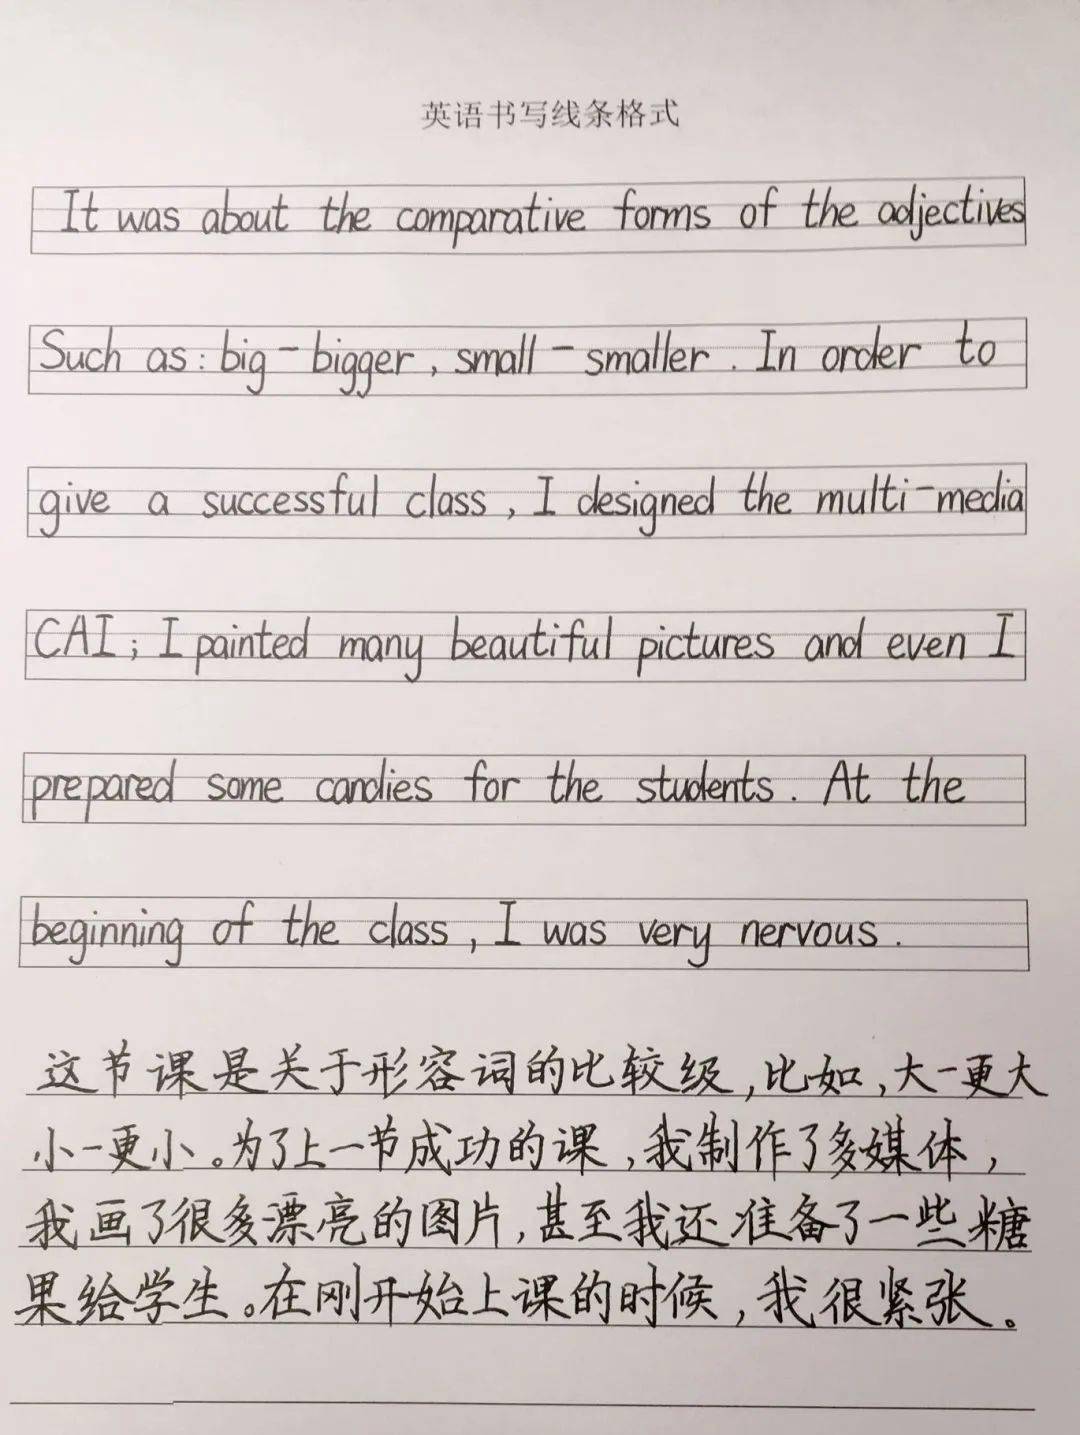 英语书写线条格式
It was about the comparative forms of the adjectives
Such as: big-bigger, small-smaller. In order to
give a successful class, I designed the multi-media
CAI; I painted many beautiful pictures and even I
prepared some candies for the students. At the
beginning of the class, I was very nervous.
这节课是关于形容词的比较级,比如,大一更大
小一更小。为了上一节成功的课,我制作了多媒体,
我画了很多漂亮的图片,甚至我还准备了一些糖
果给学生。在刚开始上课的时候,我很紧张。